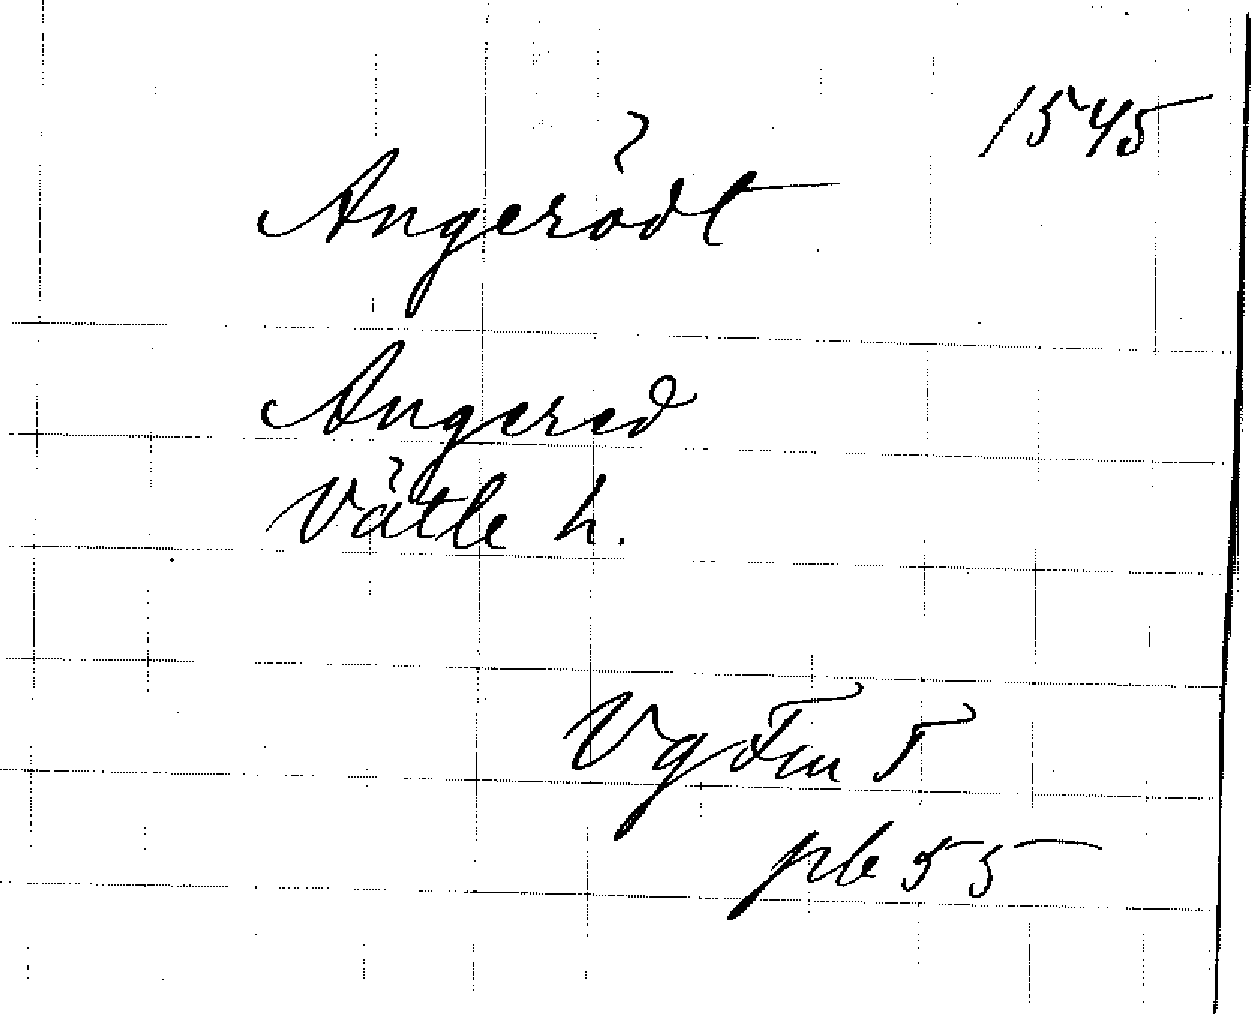 1545
Angerödt
Angered
Vätle h.
Vg Fm 5
plb 55